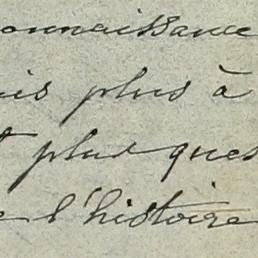 onnaissance
is plus à
plus ques
l'histoire